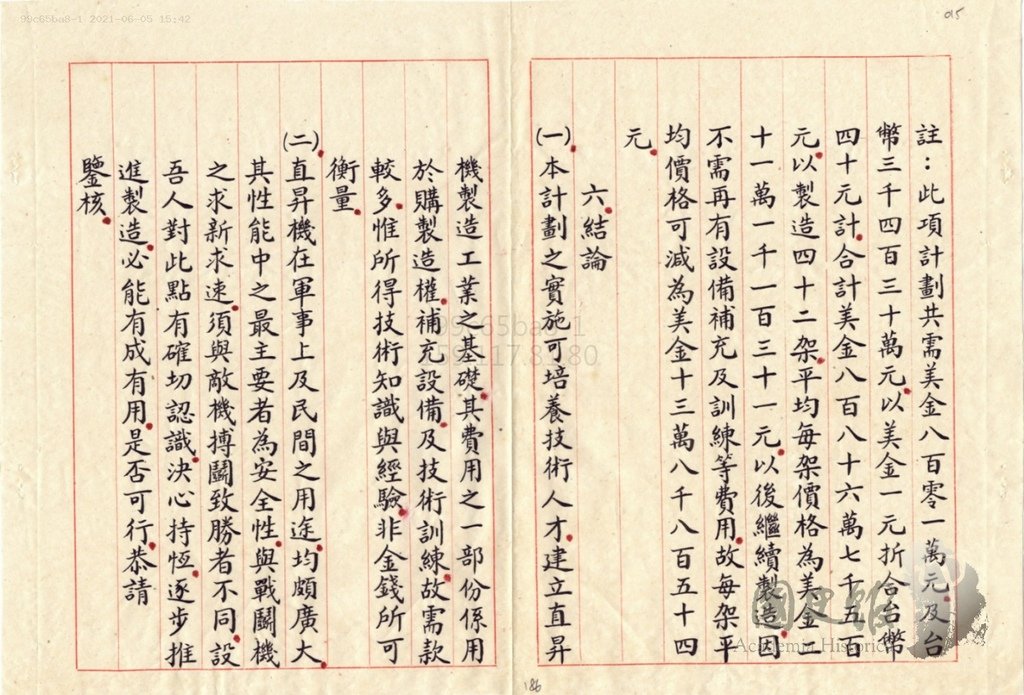 99c65ba8-1 2021-06-05 15:42
015
註：此項計劃共需美金八百零一萬元。及台
幣三千四百三十萬元。以美金一元折合台幣
四十元計。合計美金八百八十六萬七千五百
元。以製造四十二架。平均每架價格為美金二
十一萬一千一百三十一元。以後繼續製造。因
不需再有設備補充及訓練等費用。故每架平
均價格可減為美金十三萬八千八百五十四
元。
六。結論
(一)。本計劃之實施可培養技術人才。建立直昇
機製造工業之基礎。其費用之一部份係用
於購製造權。補充設備。及技術訓練。故需款
較多。惟所得技術知識與經驗。非金錢所可
衡量。
(二)。直昇機在軍事上及民間之用途。均頗廣大。
其性能中之最主要者為安全性。與戰鬪機
之求新求速。須與敵機搏鬪致勝者不同。設
吾人對此點有確切認識。決心持恆。逐步推
進製造。必能有成有用。是否可行。恭請
鑒核。
186
國史館
Academia Historica